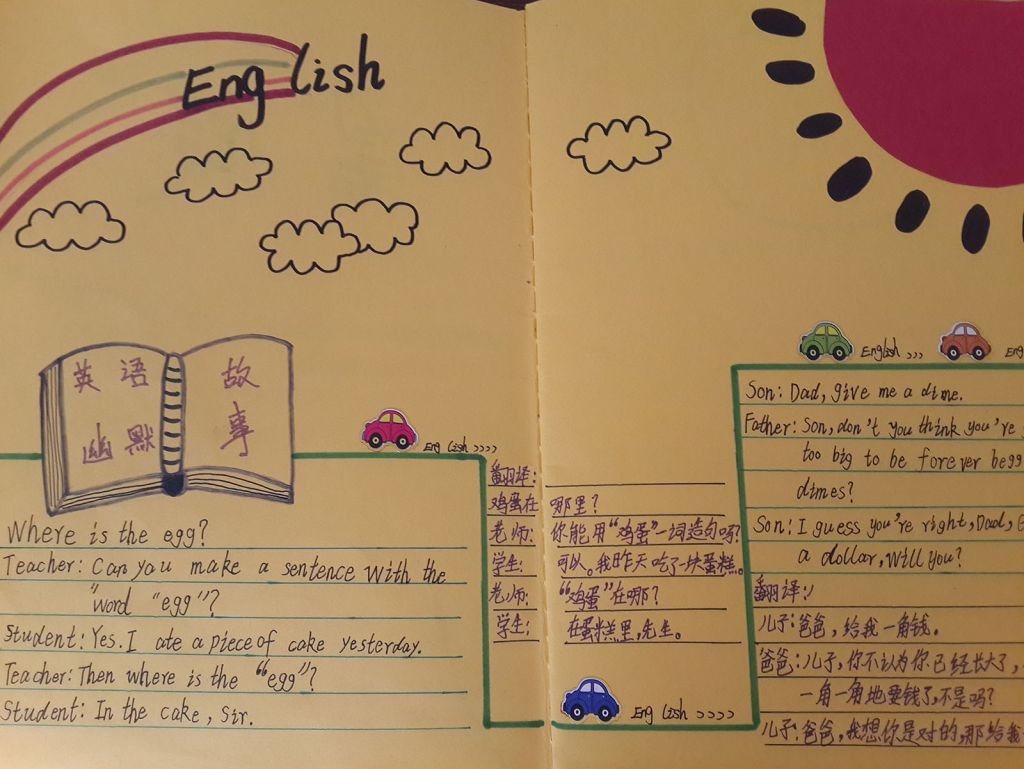 English
英语 故
幽默 事
English >>>>
Where is the egg?
Teacher: Can you make a sentence with the
"word "egg"?
Student: Yes. I ate a piece of cake yesterday.
Teacher: Then where is the "egg"?
Student: In the cake, Sir.
翻译:
鸡蛋在 哪里?
老师: 你能用“鸡蛋”一词造句吗?
学生: 可以。我昨天吃了一块蛋糕。
老师: “鸡蛋”在哪?
学生: 在蛋糕里,先生。
English >>>>
English >>>
Son: Dad, give me a dime.
Father: Son, don't you think you're
too big to be forever begg
dimes?
Son: I guess you're right, Dad, G
a dollar, will you?
翻译:
儿子:爸爸,给我一角钱。
爸爸:儿子,你不认为你已经长大了,
一角一角地要钱了,不是吗?
儿子:爸爸,我想你是对的,那给我